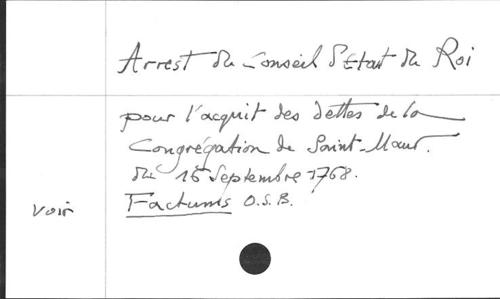 Arrest du Conseil d'Etat du Roi
pour l'acquit des dettes de la
Congrégation de Saint-Maur.
du 15 Septembre 1768.
voir Factums O.S.B.